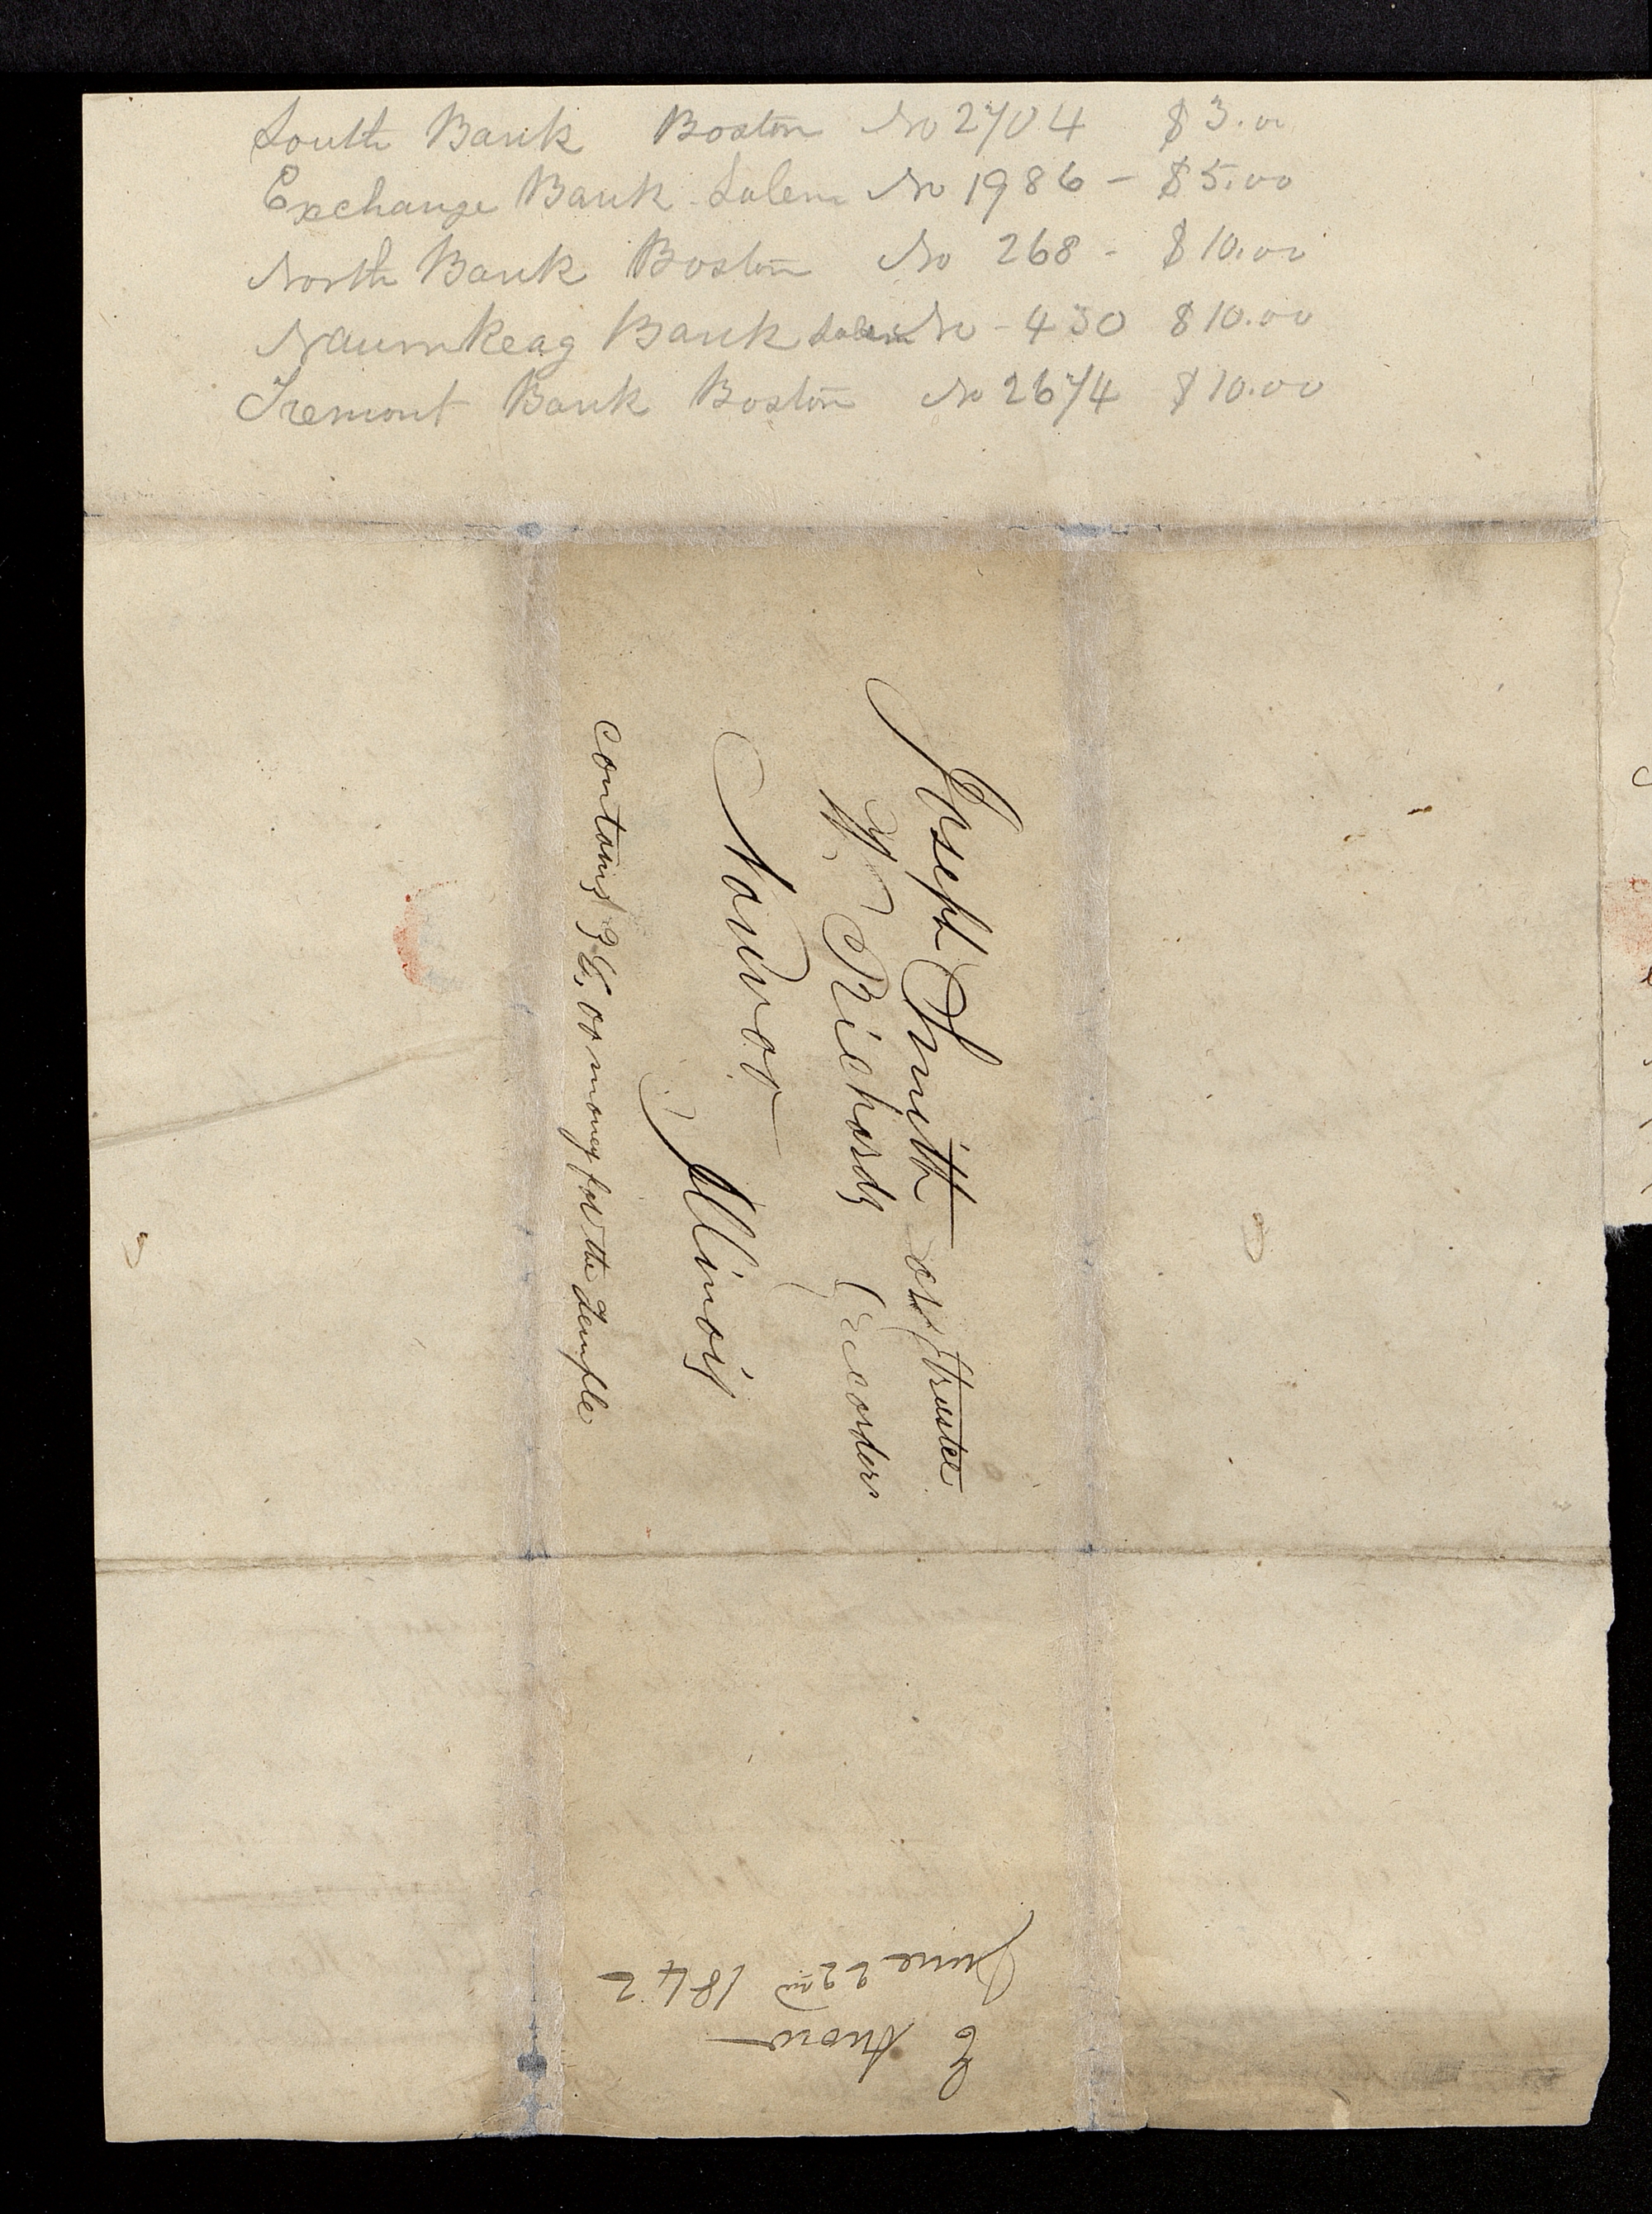 South Bank Boston No 2704 $3.00
Exchange Bank Salem No 1986 - $5.00
North Bank Boston No 268 - $10.00
Naumkeag Bank Salem No - 430 $10.00
Tremont Bank Boston No 2674 $10.00
Joseph Smith as trustee
W Richards Recorder
Nauvoo
Illinois
contains 36,00 money for the Temple
E Snow
June 22nd 1842